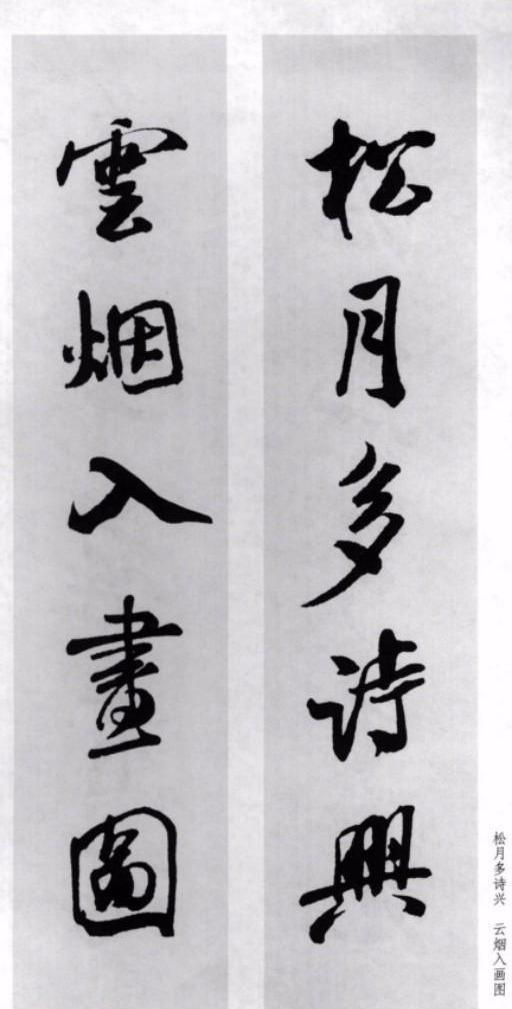 松月多诗興
雲烟入畫圖
松月多诗兴 云烟入画图